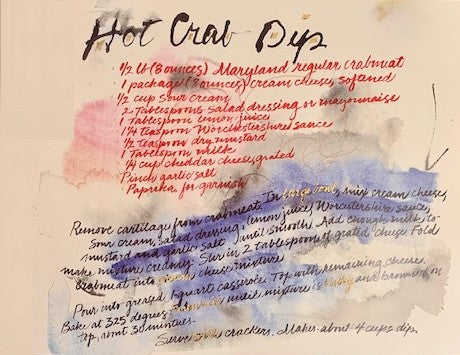 Hot Crab Dip
1/2 lb (8 ounces) Maryland regular crabmeat
1 package (8 ounces) cream cheese, softened
1/2 cup sour cream
2 Tablespoons salad dressing or mayonnaise
1 Tablespoon lemon juices
1 1/4 teaspoon Worcestershire sauce
1/2 teaspoon dry mustard
1 Tablespoon milk
1/4 cup cheddar cheese, grated
Pinch garlic salt
Paprika for garnish
Remove cartilage from crabmeat. In large bowl, mix cream cheese,
sour cream, salad dressing, lemon juice, Worcestershire sauce,
mustard and garlic salt until smooth. Add enough milk to
make mixture creamy. Stir in 2 tablespoons of grated cheese. Fold
crabmeat into cheese mixture.
Pour into greased 1 quart casserole. Top with remaining cheese.
Bake at 325 degrees until mixture is and browned on
top, about 30 minutes.
Serve crackers. Makes about 4 cups dip.